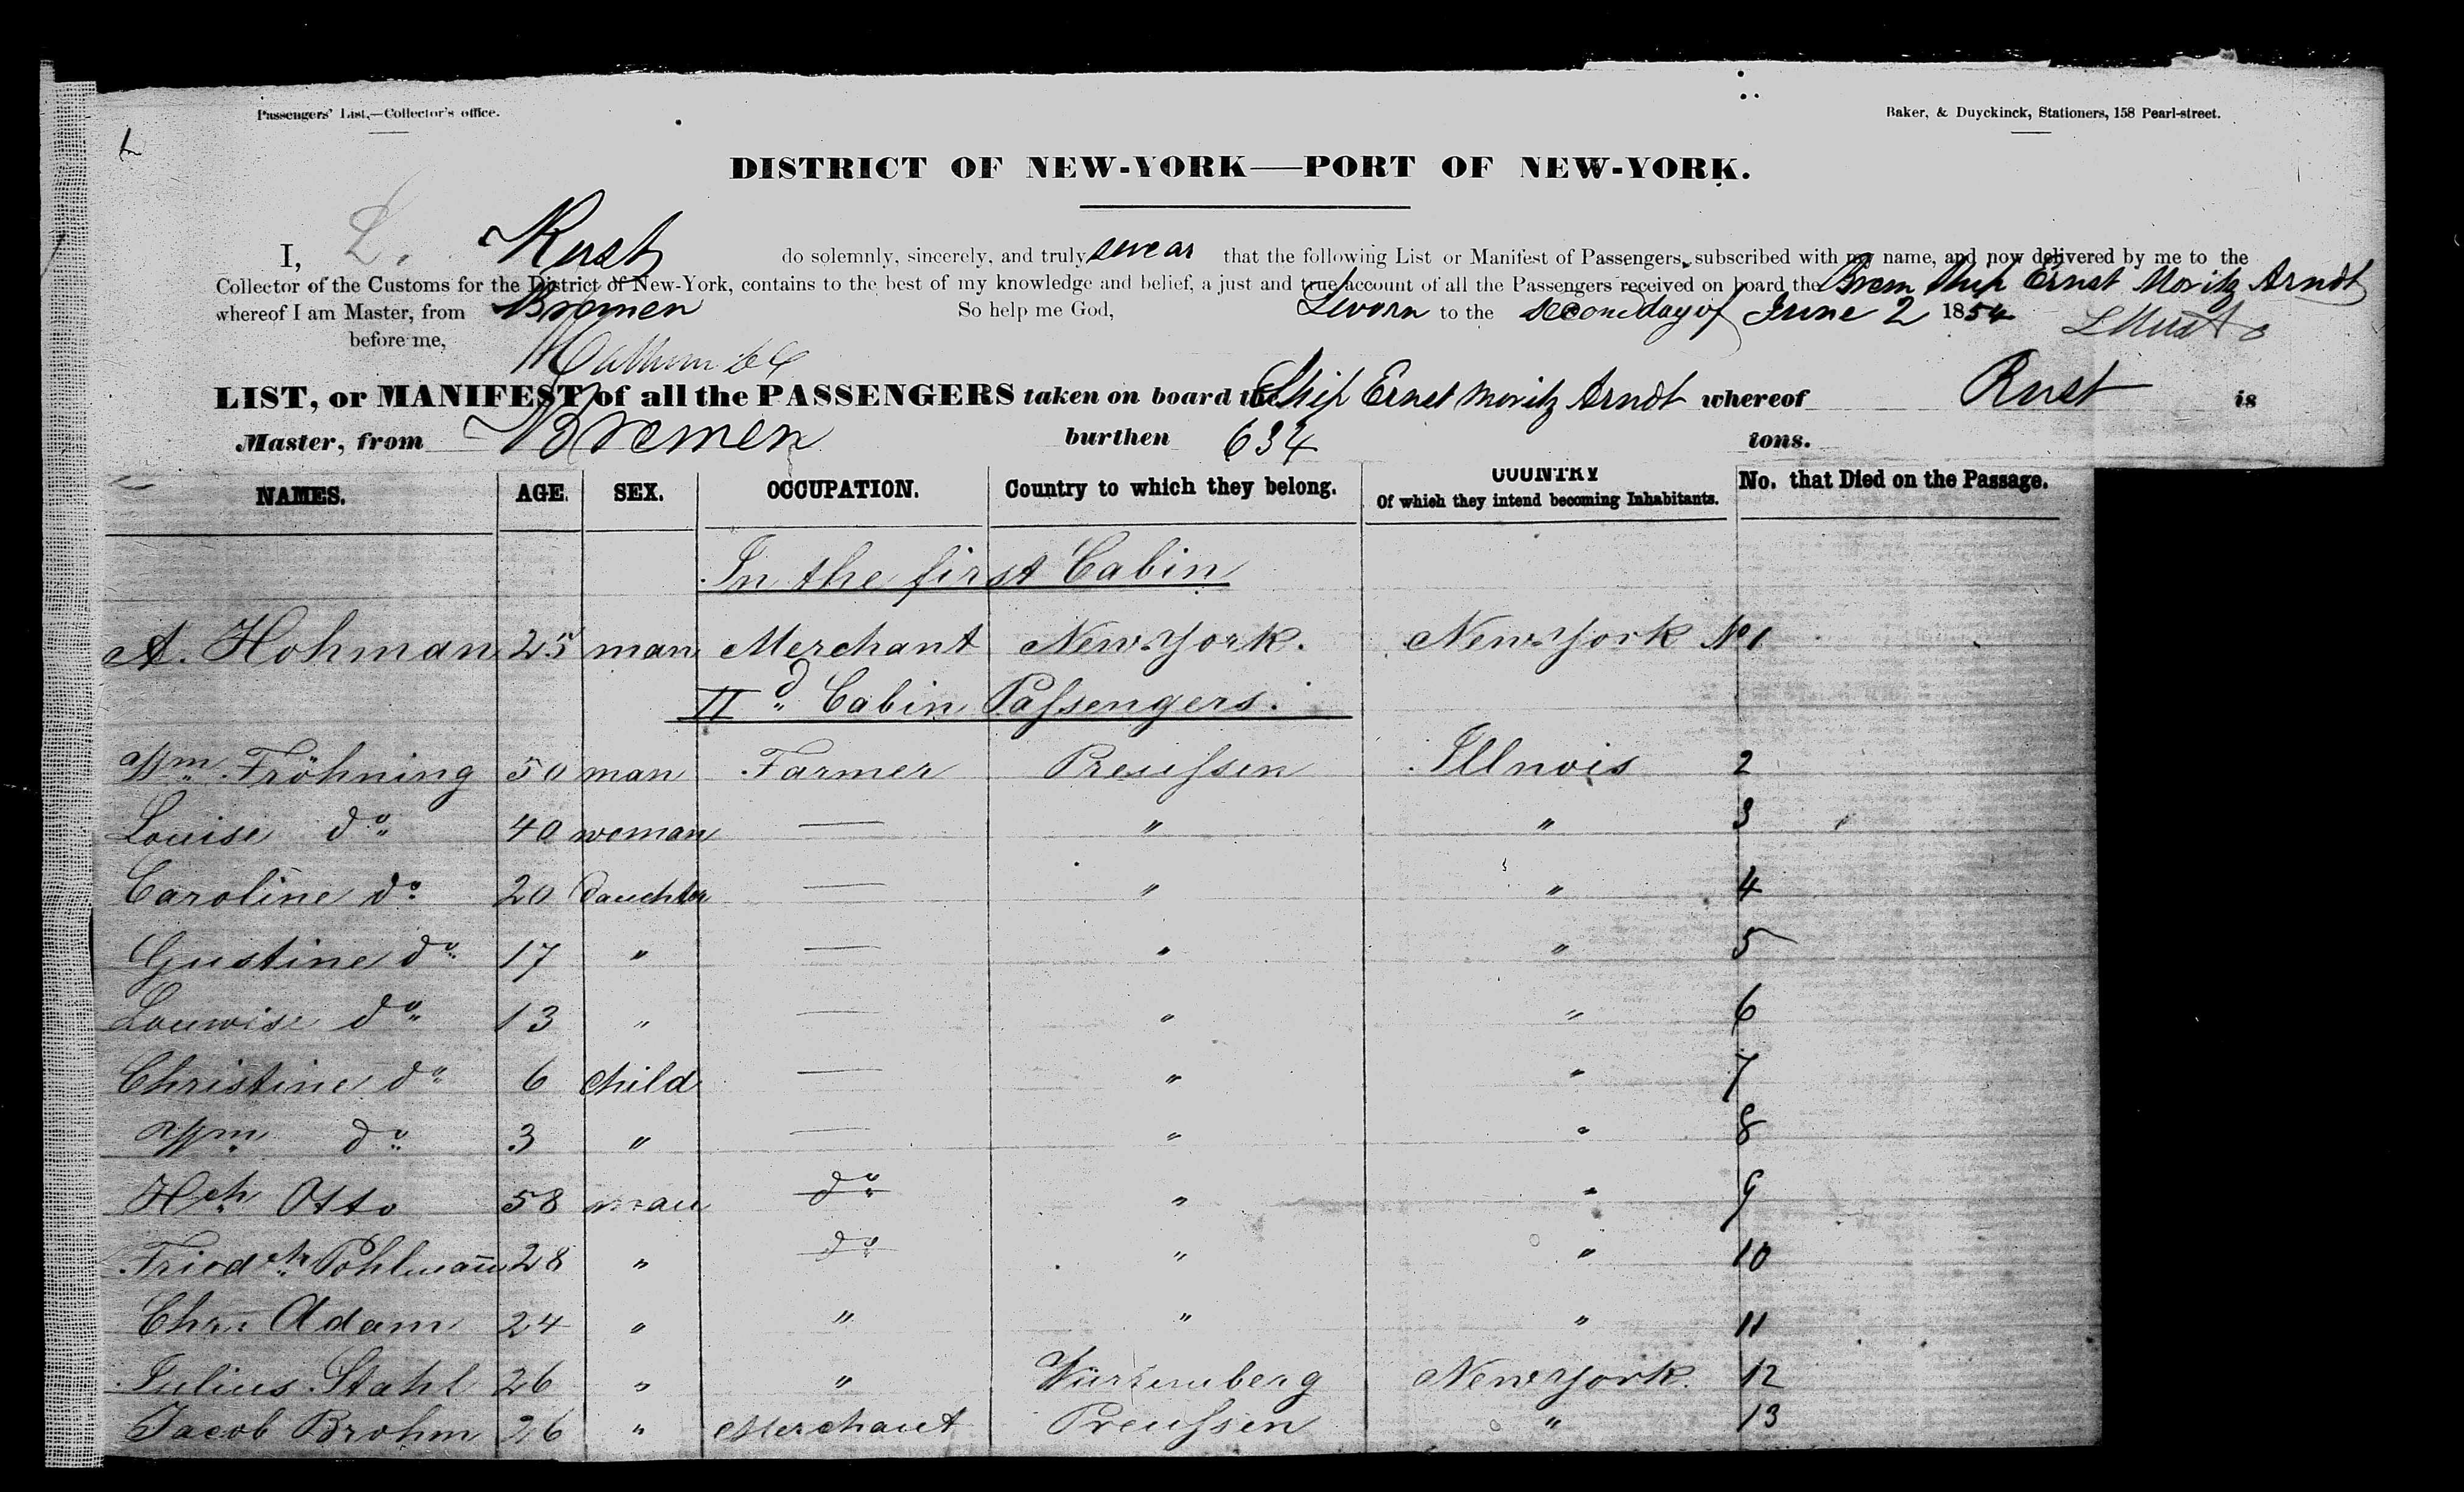 Passengers' List,—Collector's office.
Baker, & Duyckinck, Stationers, 158 Pearl-street.
DISTRICT OF NEW-YORK—PORT OF NEW-YORK.
I, L. Rust do solemnly, sincerely, and truly swear that the following List or Manifest of Passengers, subscribed with my name, and now delivered by me to the
Collector of the Customs for the District of New-York, contains to the best of my knowledge and belief, a just and true account of all the Passengers received on board the Brem Ship Ernst Moritz Arndt
whereof I am Master, from Bremen So help me God, Sworn to the second day of June 2 1854 L Rust
before me,
LIST, or MANIFEST of all the PASSENGERS taken on board the Ship Ernst Moritz Arndt whereof Rust is
Master, from Bremen burthen 634 tons.
NAMES. AGE. SEX. OCCUPATION. Country to which they belong. COUNTRY Of which they intend becoming Inhabitants. No. that Died on the Passage.
In the first Cabin
A. Hohman 25 man Merchant New-York. New-York No 1
IId Cabin Passengers.
Wm Fröhning 50 man Farmer Preussen Illnois 2
Louise do 40 woman — " " 3
Caroline do 20 Dauchter — " " 4
Gustine do 17 " — " " 5
Louwise do 13 " — " " 6
Christine do 6 child — " " 7
Wm do 3 " — " " 8
Hch Otto 58 man do " " 9
Friedch Pohlman̅ 28 " do " " 10
Chr. Adam 24 " " " " 11
Julius Stahl 26 " " Würtemberg New York. 12
Jacob Brohm 26 " Merchant Preussen " 13